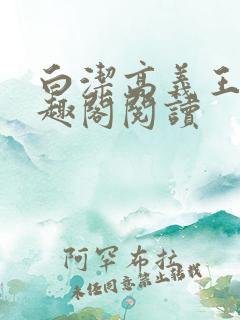 白潔高義王
趣閣閱讀
阿罕布拉
未经同意禁止转载